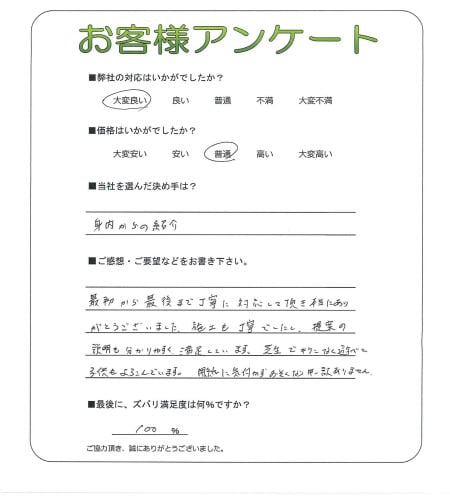 お客様アンケート
■弊社の対応はいかがでしたか？
大変良い 良い 普通 不満 大変不満
■価格はいかがでしたか？
大変安い 安い 普通 高い 大変高い
■当社を選んだ決め手は？
身内からの紹介
■ご感想・ご要望などをお書き下さい。
最初から最後まで丁寧に対応して頂き本当にあり
がとうございました。施工も丁寧でしたし、提案の
説明も分かりやすく満足しています。芝生で
子供もよろこんでいます。 気付かずおそくなり申し訳ありません。
■最後に、ズバリ満足度は何%ですか？
100 %
ご協力頂き、誠にありがとうございました。